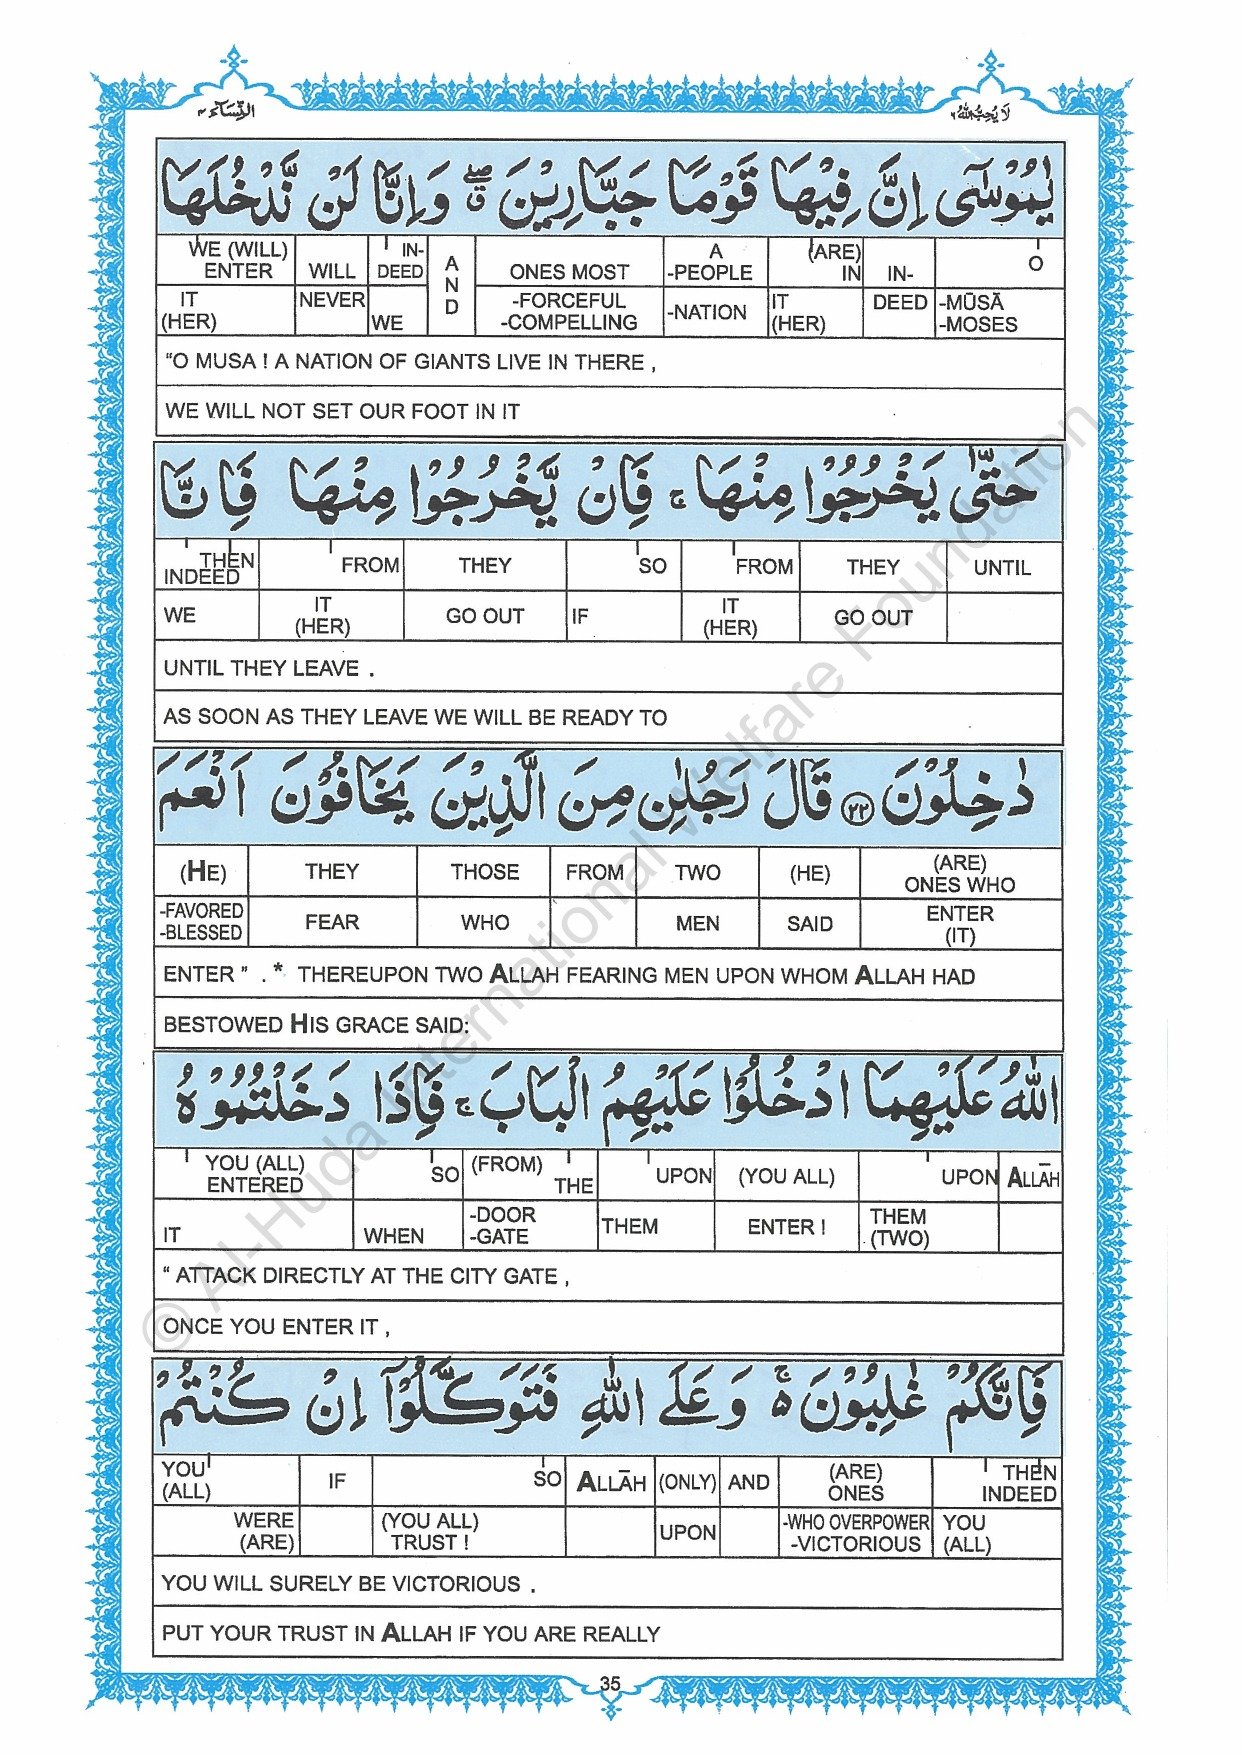 النِّسَآء ٤
لَا يُحِبُّ اللهُ ٦
يٰمُوْسٰٓى اِنَّ فِيْهَا قَوْمًا جَبَّارِيْنَ ۖۗ وَاِنَّا لَنْ نَّدْخُلَهَا
WE (WILL) ENTER WILL IN-DEED AND ONES MOST A -PEOPLE (ARE) IN IN- O
IT (HER) NEVER WE -FORCEFUL -COMPELLING -NATION IT (HER) DEED -MŪSĀ -MOSES
"O MUSA ! A NATION OF GIANTS LIVE IN THERE ,
WE WILL NOT SET OUR FOOT IN IT
حَتّٰى يَخْرُجُوْا مِنْهَا ۚ فَاِنْ يَّخْرُجُوْا مِنْهَا فَاِنَّا
THEN INDEED FROM THEY SO FROM THEY UNTIL
WE IT (HER) GO OUT IF IT (HER) GO OUT
UNTIL THEY LEAVE .
AS SOON AS THEY LEAVE WE WILL BE READY TO
دٰخِلُوْنَ ﴿٢٢﴾ قَالَ رَجُلٰنِ مِنَ الَّذِيْنَ يَخَافُوْنَ اَنْعَمَ
(HE) THEY THOSE FROM TWO (HE) (ARE) ONES WHO
-FAVORED -BLESSED FEAR WHO MEN SAID ENTER (IT)
ENTER " . * THEREUPON TWO ALLAH FEARING MEN UPON WHOM ALLAH HAD
BESTOWED HIS GRACE SAID:
اللهُ عَلَيْهِمَا ادْخُلُوْا عَلَيْهِمُ الْبَابَ ۚ فَاِذَا دَخَلْتُمُوْهُ
YOU (ALL) ENTERED SO (FROM) THE UPON (YOU ALL) UPON ALLĀH
IT WHEN -DOOR -GATE THEM ENTER ! THEM (TWO)
" ATTACK DIRECTLY AT THE CITY GATE ,
ONCE YOU ENTER IT ,
فَاِنَّكُمْ غٰلِبُوْنَ ۚ وَعَلَى اللهِ فَتَوَكَّلُوْٓا اِنْ كُنْتُمْ
YOU (ALL) IF SO ALLĀH (ONLY) AND (ARE) ONES THEN INDEED
WERE (ARE) (YOU ALL) TRUST ! UPON -WHO OVERPOWER -VICTORIOUS YOU (ALL)
YOU WILL SURELY BE VICTORIOUS .
PUT YOUR TRUST IN ALLAH IF YOU ARE REALLY
35
© Al-Huda International Welfare Foundation